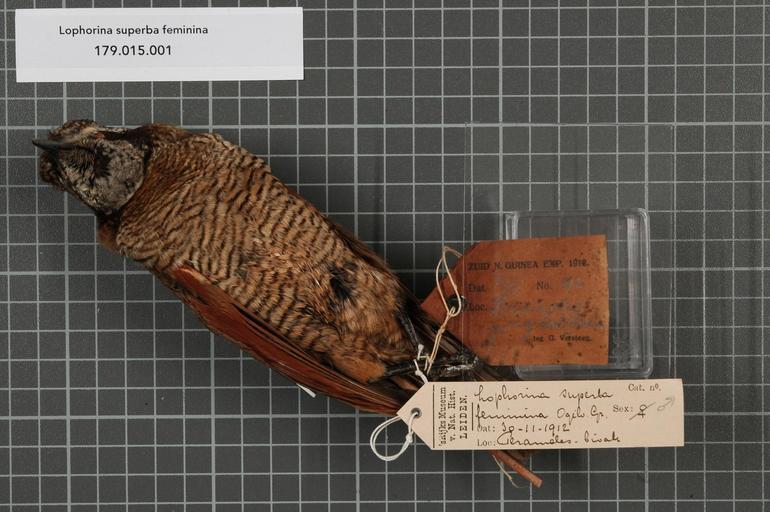 Lophorina superba feminina
179.015.001
ZUID N. GUINEA EXP. 1912.
Dat. No.
Loc.
leg G. Versteeg.
'sRijks Museum
v. Nat. Hist.
LEIDEN.
Cat. nº.
Lophorina superba
feminina Ogilv Gr. Sex: ♀ ♂
Dat: 30-11-1912
Loc: Peramales-bivak